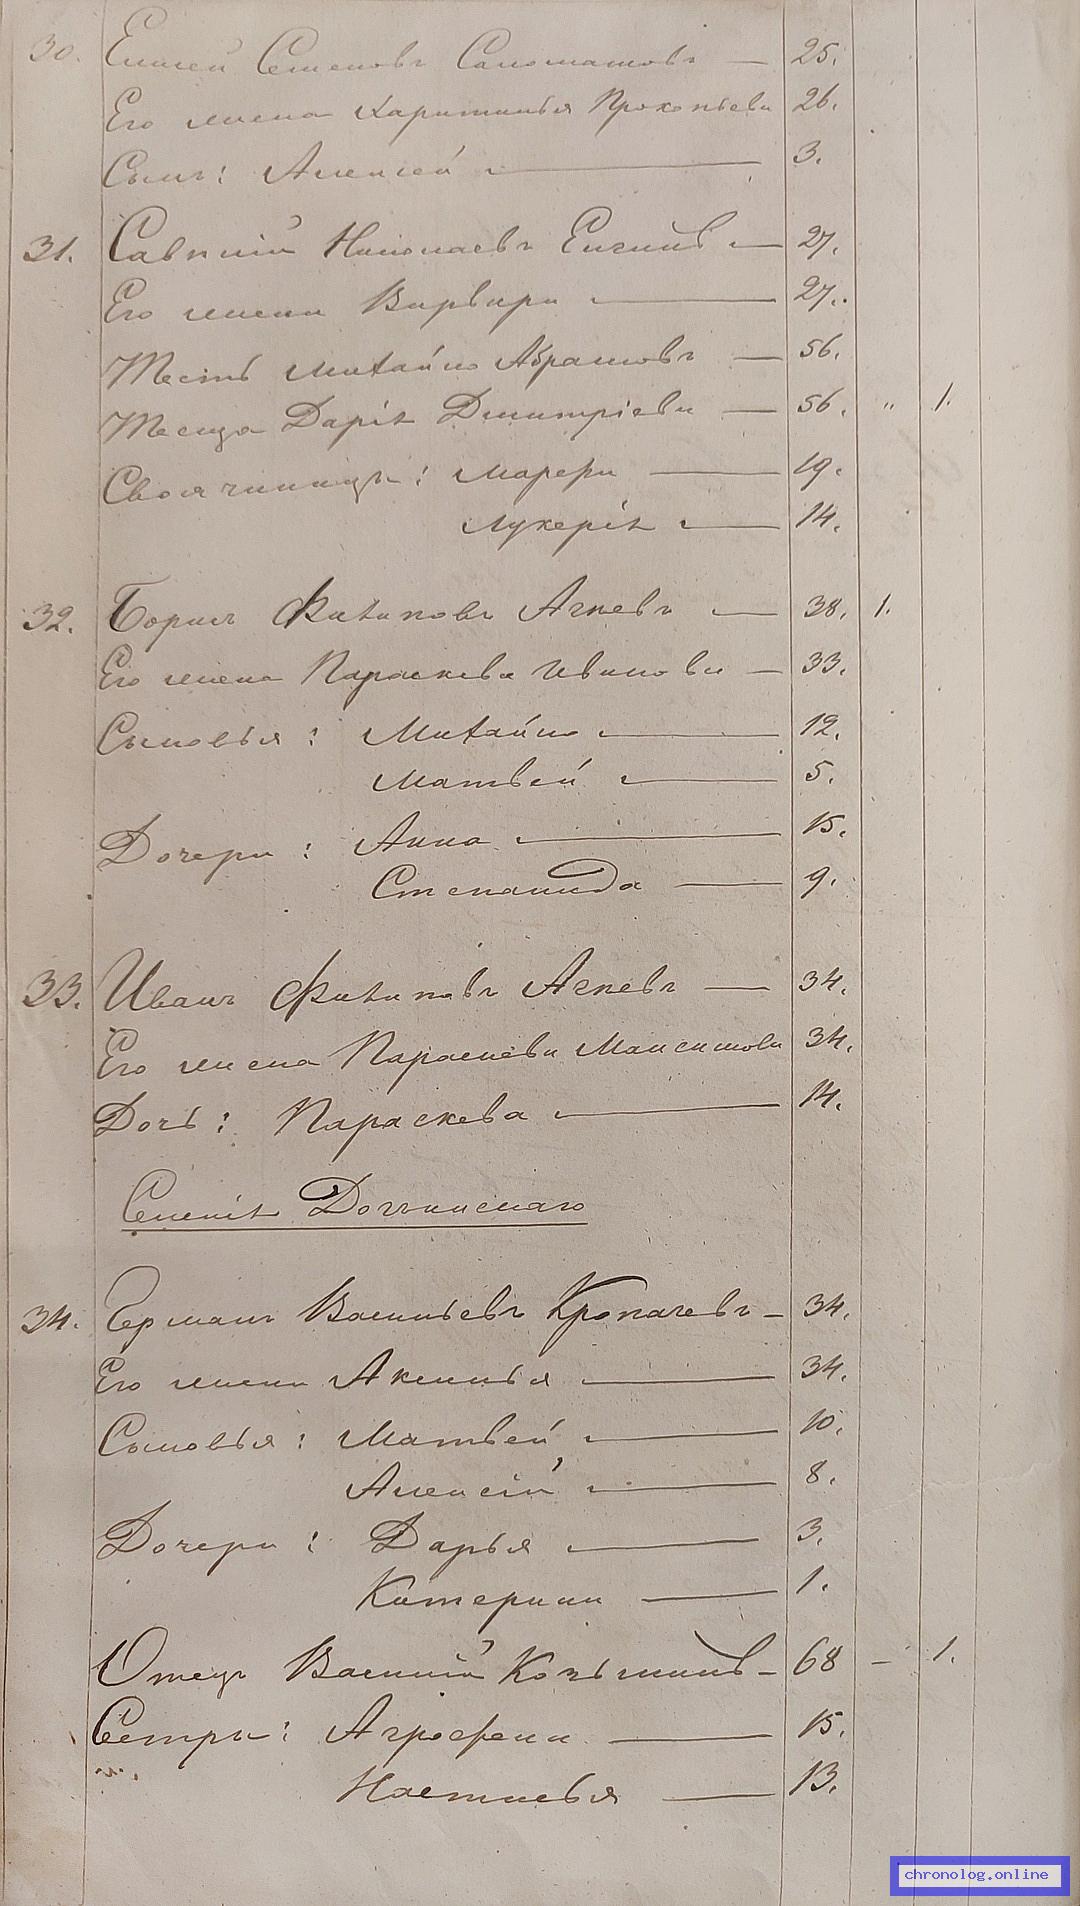 30. Елисей Семеновъ Саломатовъ — 25.
Его жена Харитинья Прокопьева 26.
Сынъ: Алексей — 3.
31. Савелій Николаевъ — 27.
Его жена Варвара — 27.
Тесть Михайло Абрамовъ — 56.
Теща Дарія Дмитріева — 56. " 1.
Своячиницы: — 19.
Лукерія — 14.
32. Борисъ Филиповъ Агпевъ — 38. 1.
Его жена Параскева Иванова — 33.
Сыновья: Михайло — 12.
Матвей — 5.
Дочери: Анна — 15.
Степанида — 9.
33. Иванъ Филиповъ Агпевъ — 34.
Его жена Параскева Максимова 34.
Дочь: Параскева — 14.
Селенія
34. Германъ Васильевъ Кропачевъ — 34.
Его жена Аксинья — 34.
Сыновья: Матвей — 10.
Алексій — 8.
Дочери: Дарья — 3.
Катерина — 1.
Отецъ Василій Козьминъ — 68 — 1.
Сестры: Агрофена — 15.
Настасья — 13.
chronolog.online